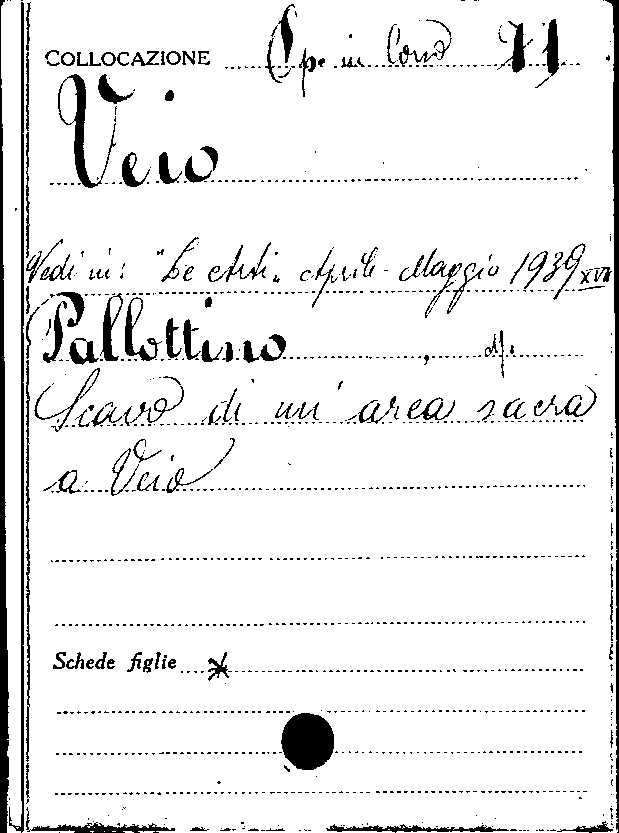 COLLOCAZIONE Op. in Cons 71
Veio
Vedi in: "Le Arti" Aprile - Maggio 1939 XVII
Pallottino, M.
Scavo di un' area sacra
a Veio
Schede figlie *